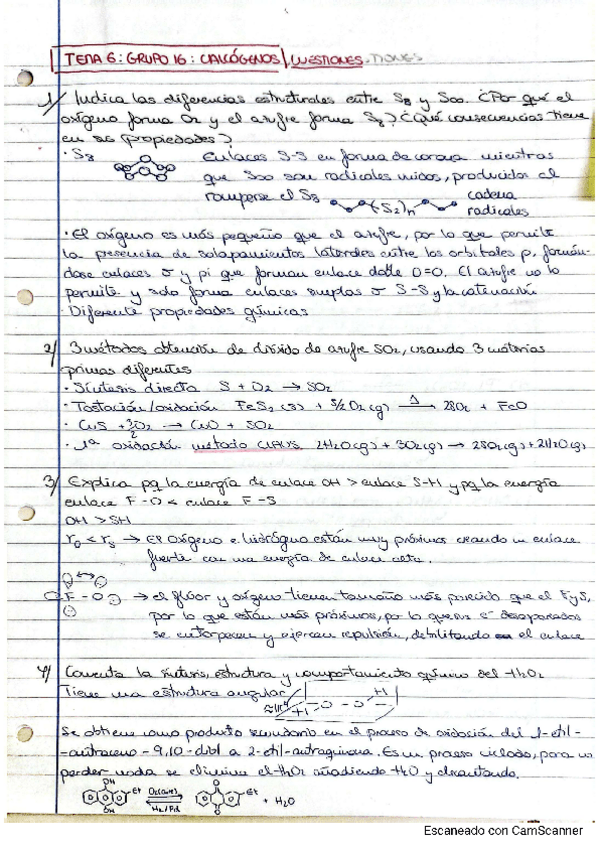 TEMA 6: GRUPO 16: CALCÓGENOS / CUESTIONES
1/ Indica las diferencias estructurales entre S8 y S∞. ¿Por qué el
oxígeno forma O2 y el azufre forma S8? ¿Qué consecuencias tiene
en sus propiedades?
· S8 Enlaces S-S en forma de corona mientras
que S∞ son radicales unidos, producidos al
romperse el S8 (S2)n cadena
radicales
· El oxígeno es más pequeño que el azufre, por lo que permite
la presencia de solapamientos laterales entre los orbitales p, formán-
dose enlaces σ y pi que forman enlace doble O=O. El azufre no lo
permite y solo forma enlaces simples σ S-S y la catenación
· Diferente propiedades químicas
2/ 3 métodos obtención de dióxido de azufre SO2, usando 3 materias
primas diferentes
· Síntesis directa S + O2 → SO2
· Tostación/oxidación FeS2 (s) + 5/2 O2 (g) Δ→ 2SO2 + FeO
· CuS + 3/2 O2 → CuO + SO2
· 1ª oxidación método CLAUS 2H2O(g) + 3O2(g) → 2SO2(g) + 2H2O(g)
3/ Explica pq la energía de enlace OH > enlace S-H y pq la energía
enlace F-O < enlace F-S
OH > SH
rO < rS → El oxígeno e hidrógeno están muy próximos creando un enlace
fuerte con una energía de enlace alta.
F-O → el flúor y oxígeno tienen tamaño más parecido que el F y S,
por lo que están más próximos, por lo que sus e⁻ desapareados
se entorpecen y ejercen repulsión, debilitando el enlace
4/ Comenta la síntesis, estructura y comportamiento químico del H2O2
Tiene una estructura angular H O - O H
Se obtiene como producto secundario en el proceso de oxidación del 2-etil-
-antraceno-9,10-diol a 2-etil-antraquinona. Es un proceso ciclado, para no
perder nada se elimina el H2O2 añadiendo H2O y decantando.
OH Et O2 (aire) O Et + H2O
OH H2/Pd O
Escaneado con CamScanner